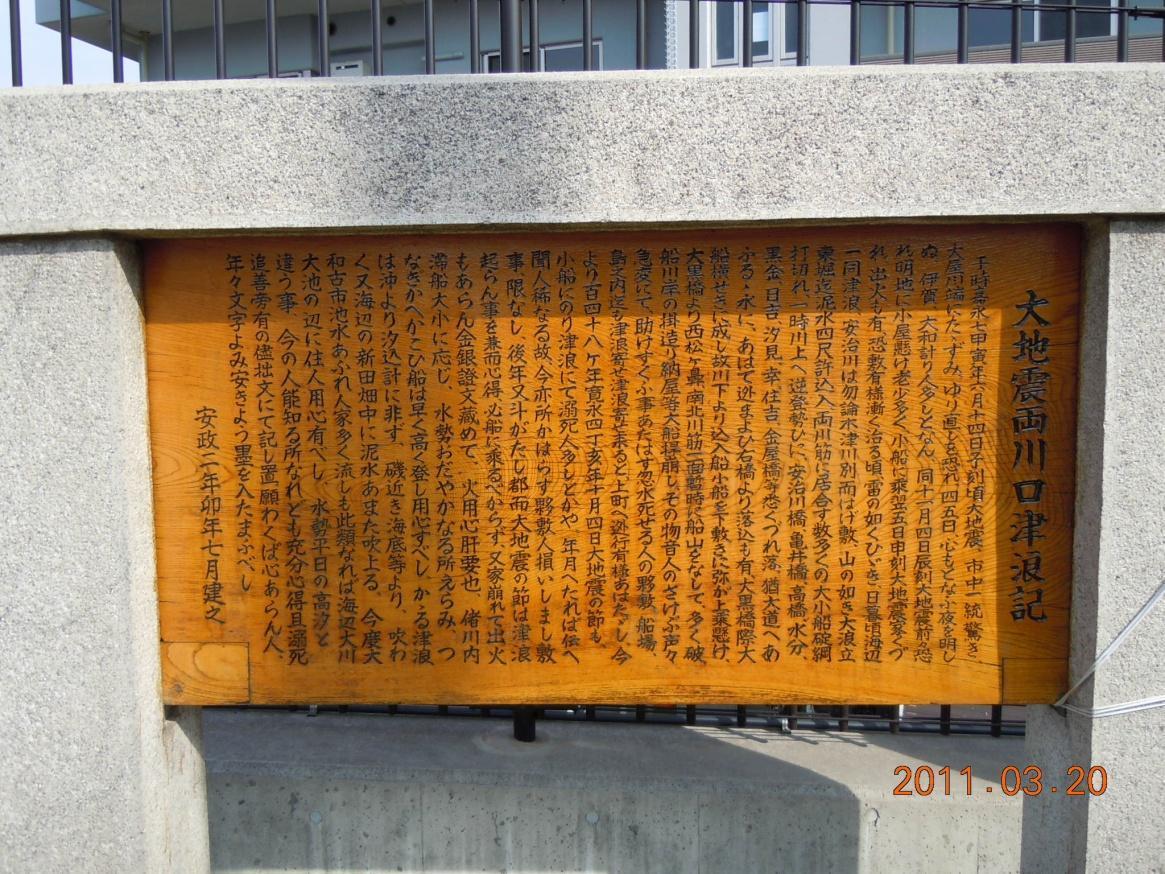 大地震両川口津浪記
于時嘉永七甲寅年六月十四日子刻頃大地震 市中一統驚き、
大屋川端にたゝずみ、ゆり直しを恐れ四五日、心もとなふ夜を明し
ぬ 伊賀、大和計り人多しとなん。同十一月四日辰刻大地震、前の恐
れ明地に小屋懸け老少多く小船に乗、翌五日申刻大地震、家々づ
れ出火も有、恐敷有様漸く治る頃、雷の如くひゞき、日暮頃海辺
一同津浪、安治川は勿論、木津川別而はげ敷、山の如き大浪立
東堀迄泥水四尺許込入、両川筋に居合す数多くの大小船碇綱
打切れ、一時川上へ逆登勢ひに、安治川橋、亀井橋、高橋、水分、
黒金、日吉、汐見、幸、住吉、金屋橋等悉くづれ落、猶大道へあ
ふるゝ水に、あはて逃まよひ右橋より落込も有、大黒橋際大
船横せきに成し故、川下より込入船小船を下敷きに弥が上乗懸け、
大黒橋より西松ヶ鼻南北川筋一面暫時に船山をなして、多く破、
船川岸の掛造り納屋等大船押崩しその物音人のさけぶ声々
急変にて、助けすくふ事あたはず、忽水死せる人の夥敷、船場、
島之内迄も津浪寄せ来ると上町へ逃行有様あはたゝし、今
より百四十八ヶ年寛永四丁亥年十月四日大地震の節も、
小船にのり津浪にて溺死人多しとかや、年月へたれば伝へ
聞人稀なる故、今亦所かはらず夥敷人損いしまし敷
事、限なし、後年又斗がたし都而大地震の節は津浪
起らん事を兼而心得、必船に乗るべからず、又家崩れて出火
もあらん金銀證文蔵めて、火用心肝要也、偖川内
滞船大小に応じ、水勢おだやかなる所えらみ、つ
なぎかへかこひ船は早く高く登し用心すべし、かゝる津浪
は沖より汐込計に非ず、磯近き海底等より、吹わ
く又海辺の新田畑中に泥水あまた吹上る、今度大
和古市池水あふれ人家多く流しも此類なれば海辺大川
大池の辺に住人用心有べし、水勢平日の高汐と
違う事、今の人能知る所なれども、充分心得且溺死
追善旁有の儘拙文にて記し置、願わくば心あらん人、
年々文字よみ安きよう墨を入たまふべし
安政二年卯年七月建之
2011.03.20